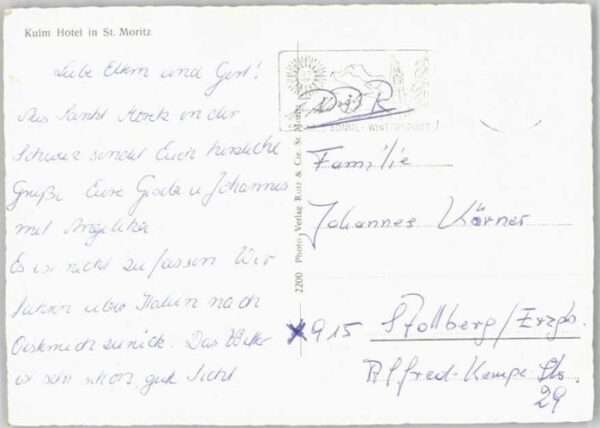 Kulm Hotel in St. Moritz
Liebe Eltern und Gert!
Aus Sankt Moritz in der
Schweiz sendet Euch herzliche
Grüße Eure Gisela u. Johannes
mit Angelika
Es ist nicht zu fassen Wir
fahren über Italien nach
Österreich zurück. Das Wetter
ist sehr schön, gute Sicht
2200 Photo Verlag Rutz & Cie. St. Moritz
DDR
WINTERSPORT
Familie
Johannes Körner
X915 Stollberg/Erzgb.
Alfred-Kempe-Str.
29